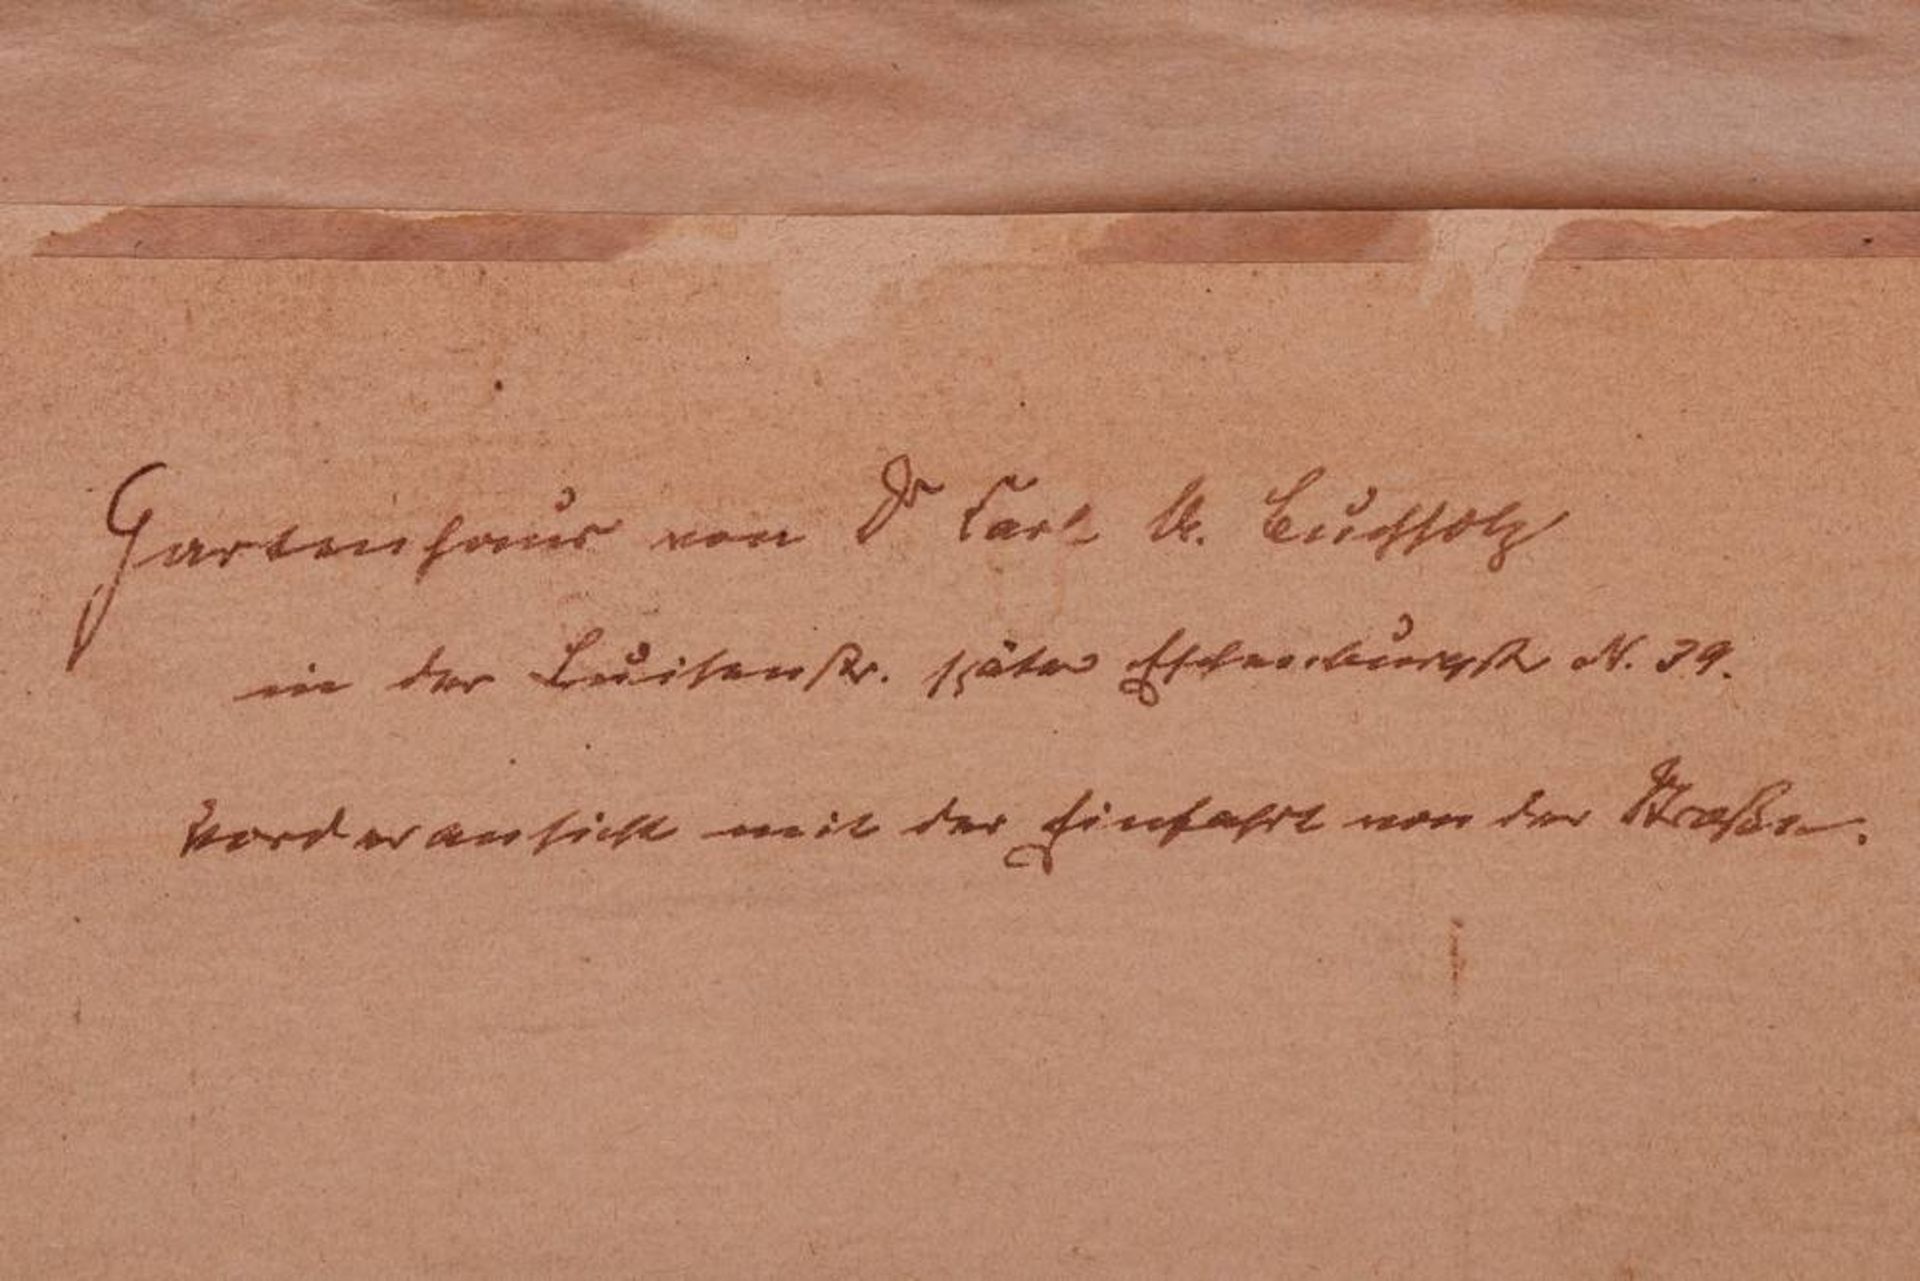 Gartenhaus von Dr Carl A. Buchholz
in der Luisenstr. später Eschenburgstr N. 39.
Vorderansicht mit der Einfahrt von der Straße.